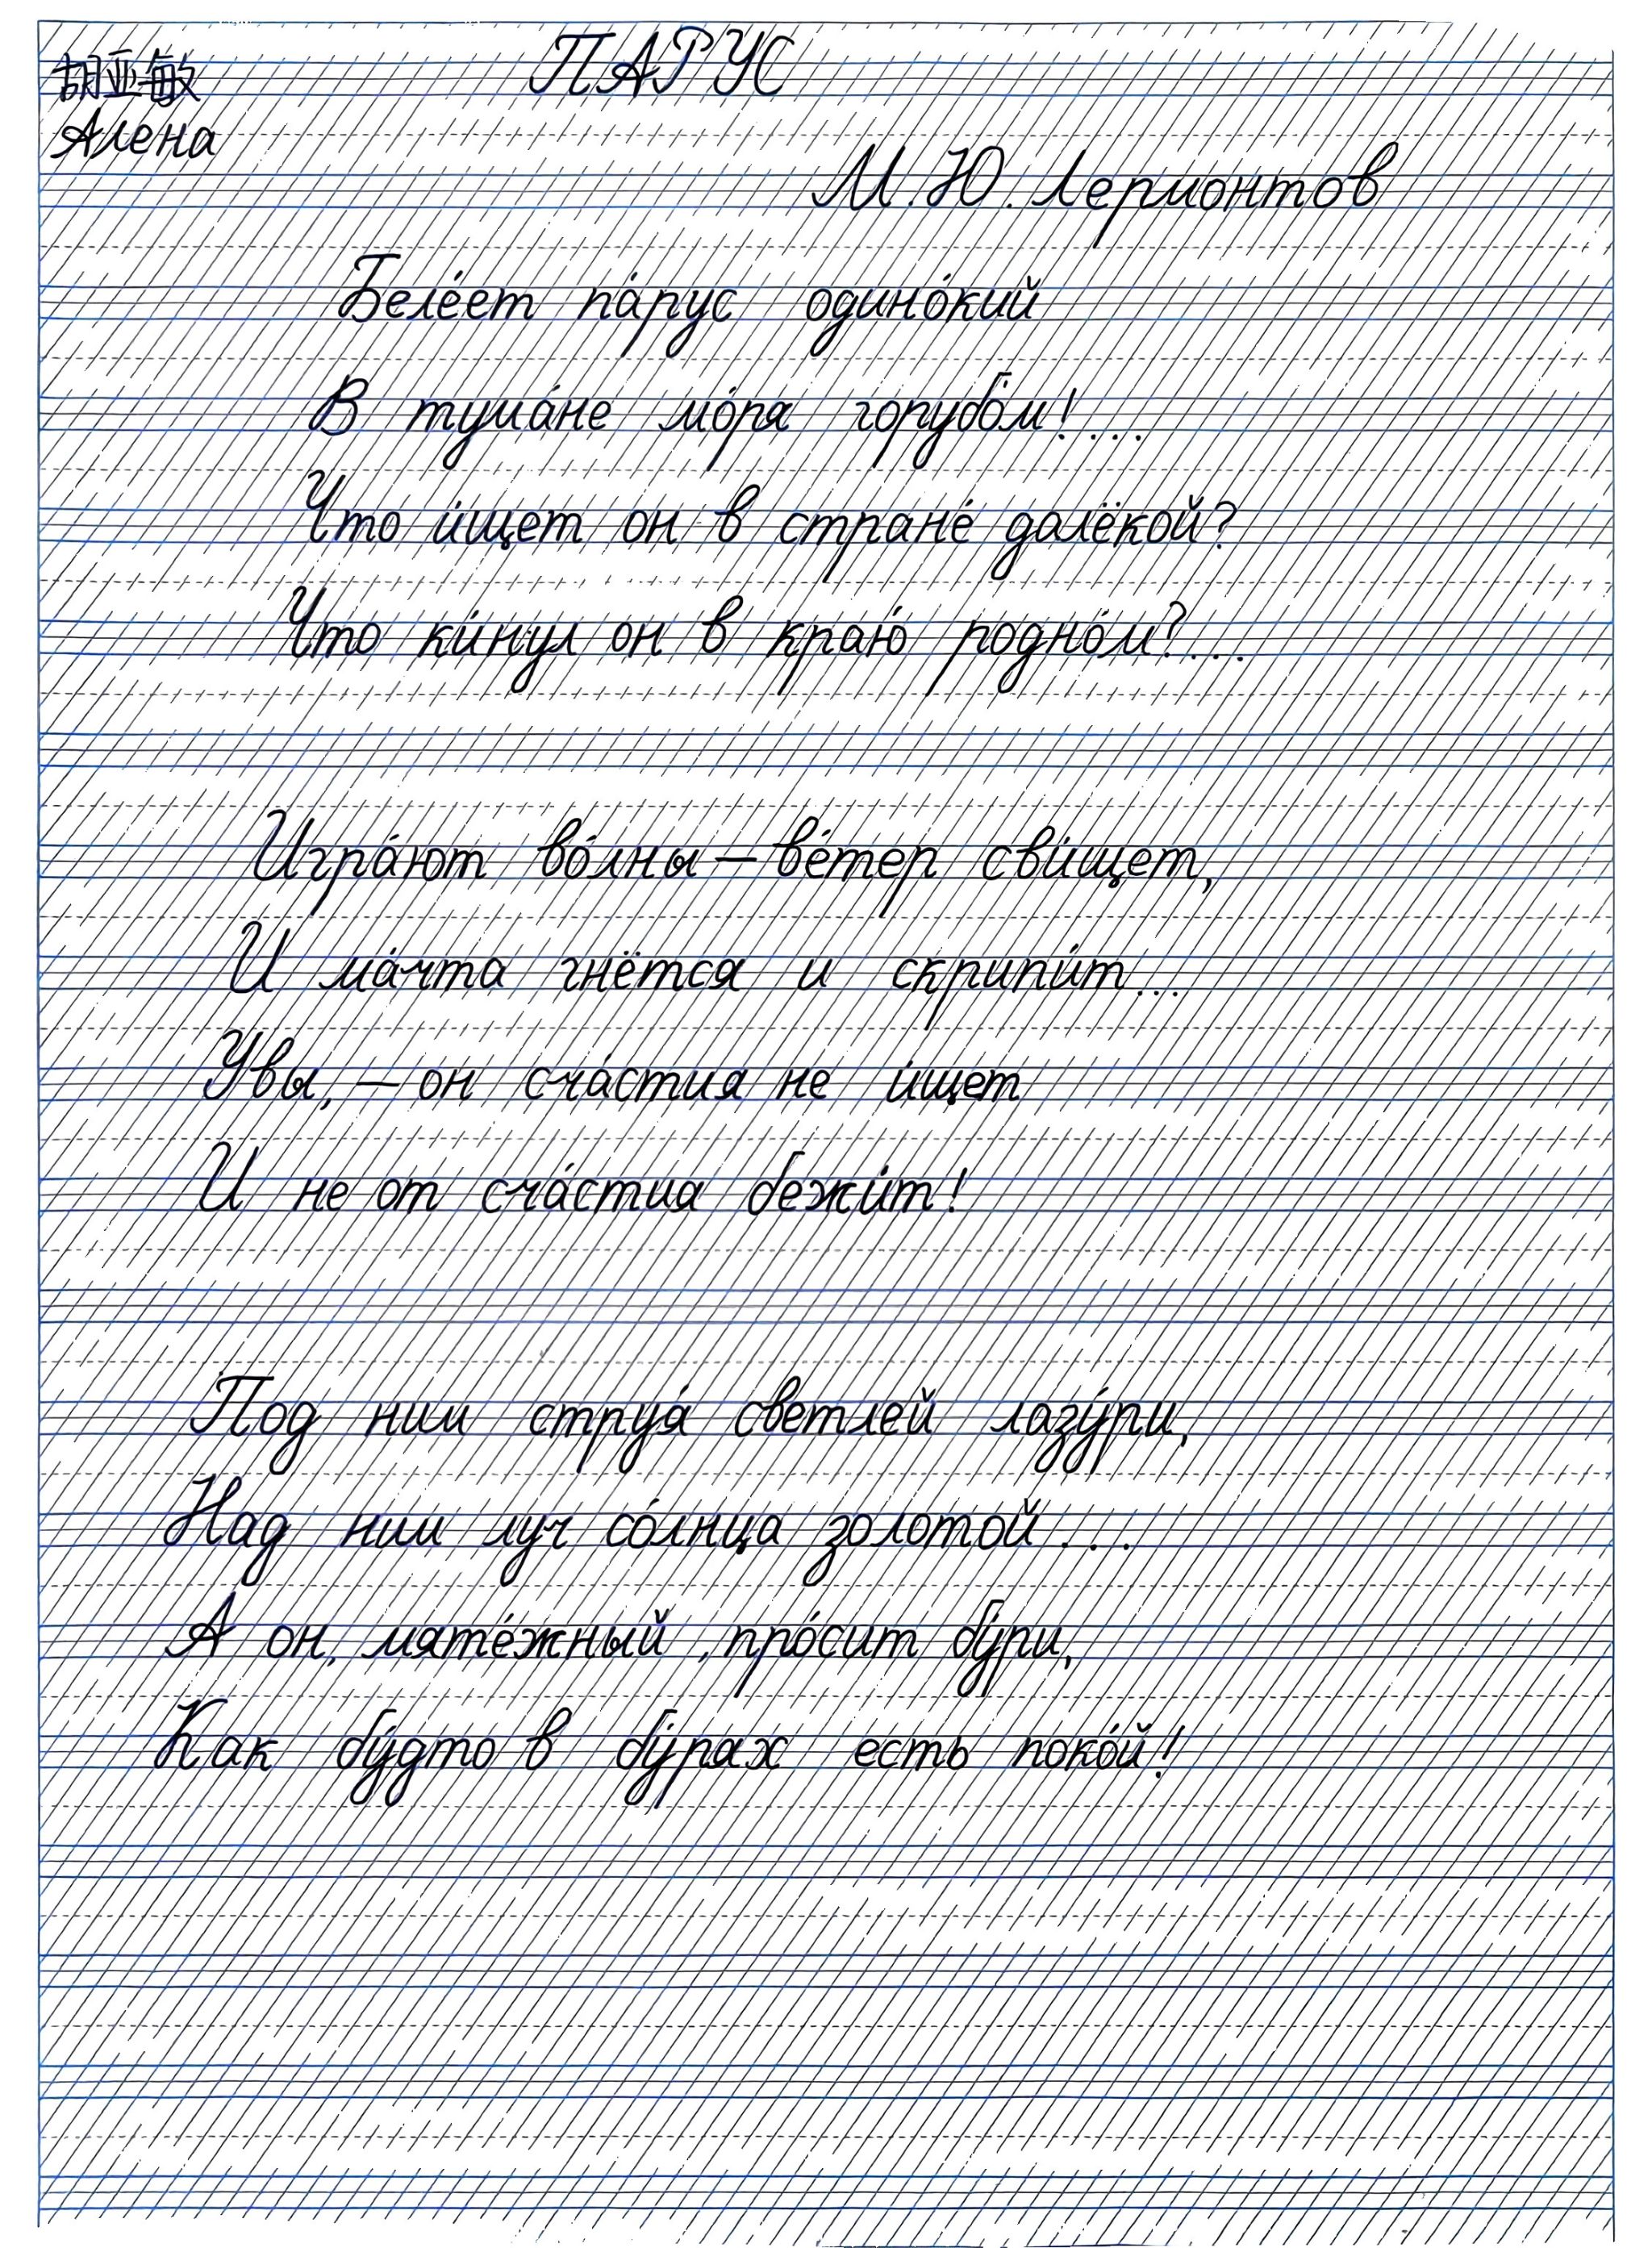 胡亚敏
Алена
ПАРУС
М. Ю. Лермонтов
Беле́ет па́рус одино́кий
В тума́не мо́ря горубо́м!...
Что и́щет он в стране́ далёкой?
Что ки́нул он в краю́ родно́м?...
Игра́ют во́лны – ве́тер сви́щет,
И ма́чта гнётся и скрипи́т...
Увы, – он сча́стия не и́щет
И не от сча́стия бежи́т!
Под ним струя́ светлей лазу́ри,
Над ним луч со́лнца золотой...
А он, мяте́жный, про́сит бу́ри,
Как бу́дто в бу́рях есть поко́й!